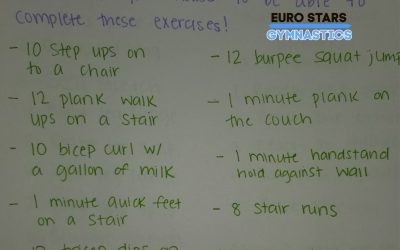 to be able to
complete these exercises!
EURO STARS
GYMNASTICS
- 10 step ups on
to a chair
- 12 plank walk
ups on a stair
- 10 bicep curl w/
a gallon of milk
- 1 minute quick feet
on a stair
- 12 burpee squat jump
- 1 minute plank on
the couch
- 1 minute handstand
hold against wall
- 8 stair runs